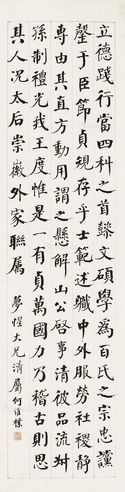 立德踐行當四科之首懿文碩學為百氏之宗忠讜
罄于臣節貞規存乎士範述職中外服勞社稷靜
專由其直方動用謂之懸解山公啓事清彼品流叔
孫制禮光我王度惟是一有貞萬國力乃稽古則思
其人况太后崇徽外家聯屬 夢惺大兄清屬 何維樸